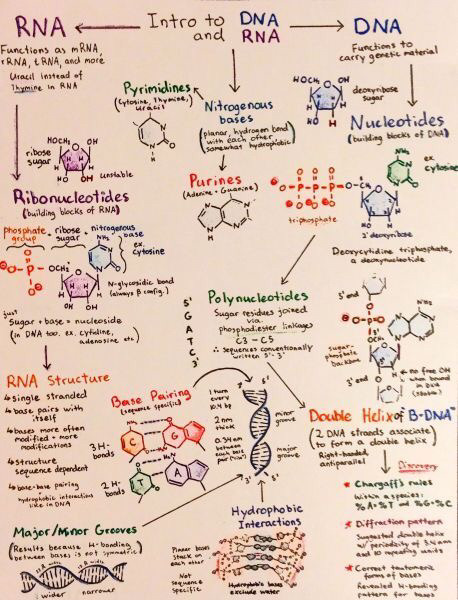 RNA
Intro to and
DNA
RNA
DNA
Functions as mRNA,
rRNA, tRNA, and more
Uracil instead of
Thymine in RNA
Pyrimidines
(Cytosine, Thymine,
Uracil)
Functions to
carry genetic material
HOCH₂
OH
deoxyribose
sugar
HO
H
Nitrogenous
bases
(planar, hydrogen bond
with each other
somewhat hydrophobic)
Nucleotides
(building blocks of DNA)
ex.
cytosine
HOCH₂
OH
ribose
sugar
HO
OH
unstable
Purines
(Adenine + Guanine)
triphosphate
2' deoxyribose
Deoxycytidine triphosphate,
a deoxynucleotide
Ribonucleotides
(building blocks of RNA)
phosphate group + ribose sugar + nitrogenous base
ex.
cytosine
N-glycosidic bond
(always β config.)
just
Sugar + base = nucleoside
(in DNA too. ex. cytidine,
adenosine etc.)
5'
G
A
T
C
3'
Polynucleotides
Sugar residues joined
via
phosphodiester linkages
C3 - C5
∴ sequences conventionally
written 5'-3'
5' end
sugar-
phosphate
backbone
3' end
no free OH
when bound
in DNA
RNA Structure
single stranded
base pairs with
itself
bases more often
modified + more
modifications
structure
sequence dependent
base-base pairing
hydrophobic interactions
like in DNA
Base Pairing
(sequence specific)
3 H-
bonds
C
G
2 H-
bonds
T
A
1 turn
every
10.4 bp
2 nm
thick
0.34 nm
between
each base
pair
3'
5'
minor
groove
major
groove
3'
5'
Double Helix of B-DNA
(2 DNA strands associate
to form a double helix)
Right-handed
antiparallel
Discovery
Chargaff's rules
Within a species:
%A=%T and %G=%C
Diffraction pattern
Suggested double helix
w/ periodicity of
and 10 repeating units
Correct tautomeric
forms of bases
Revealed H-bonding
pattern for bases
Major/Minor Grooves
(Results because H-bonding
between bases is not symmetric)
wider
narrower
Hydrophobic
Interactions
Planar bases
stack on
each other
Not
sequence
specific
Hydrophobic bases
exclude water